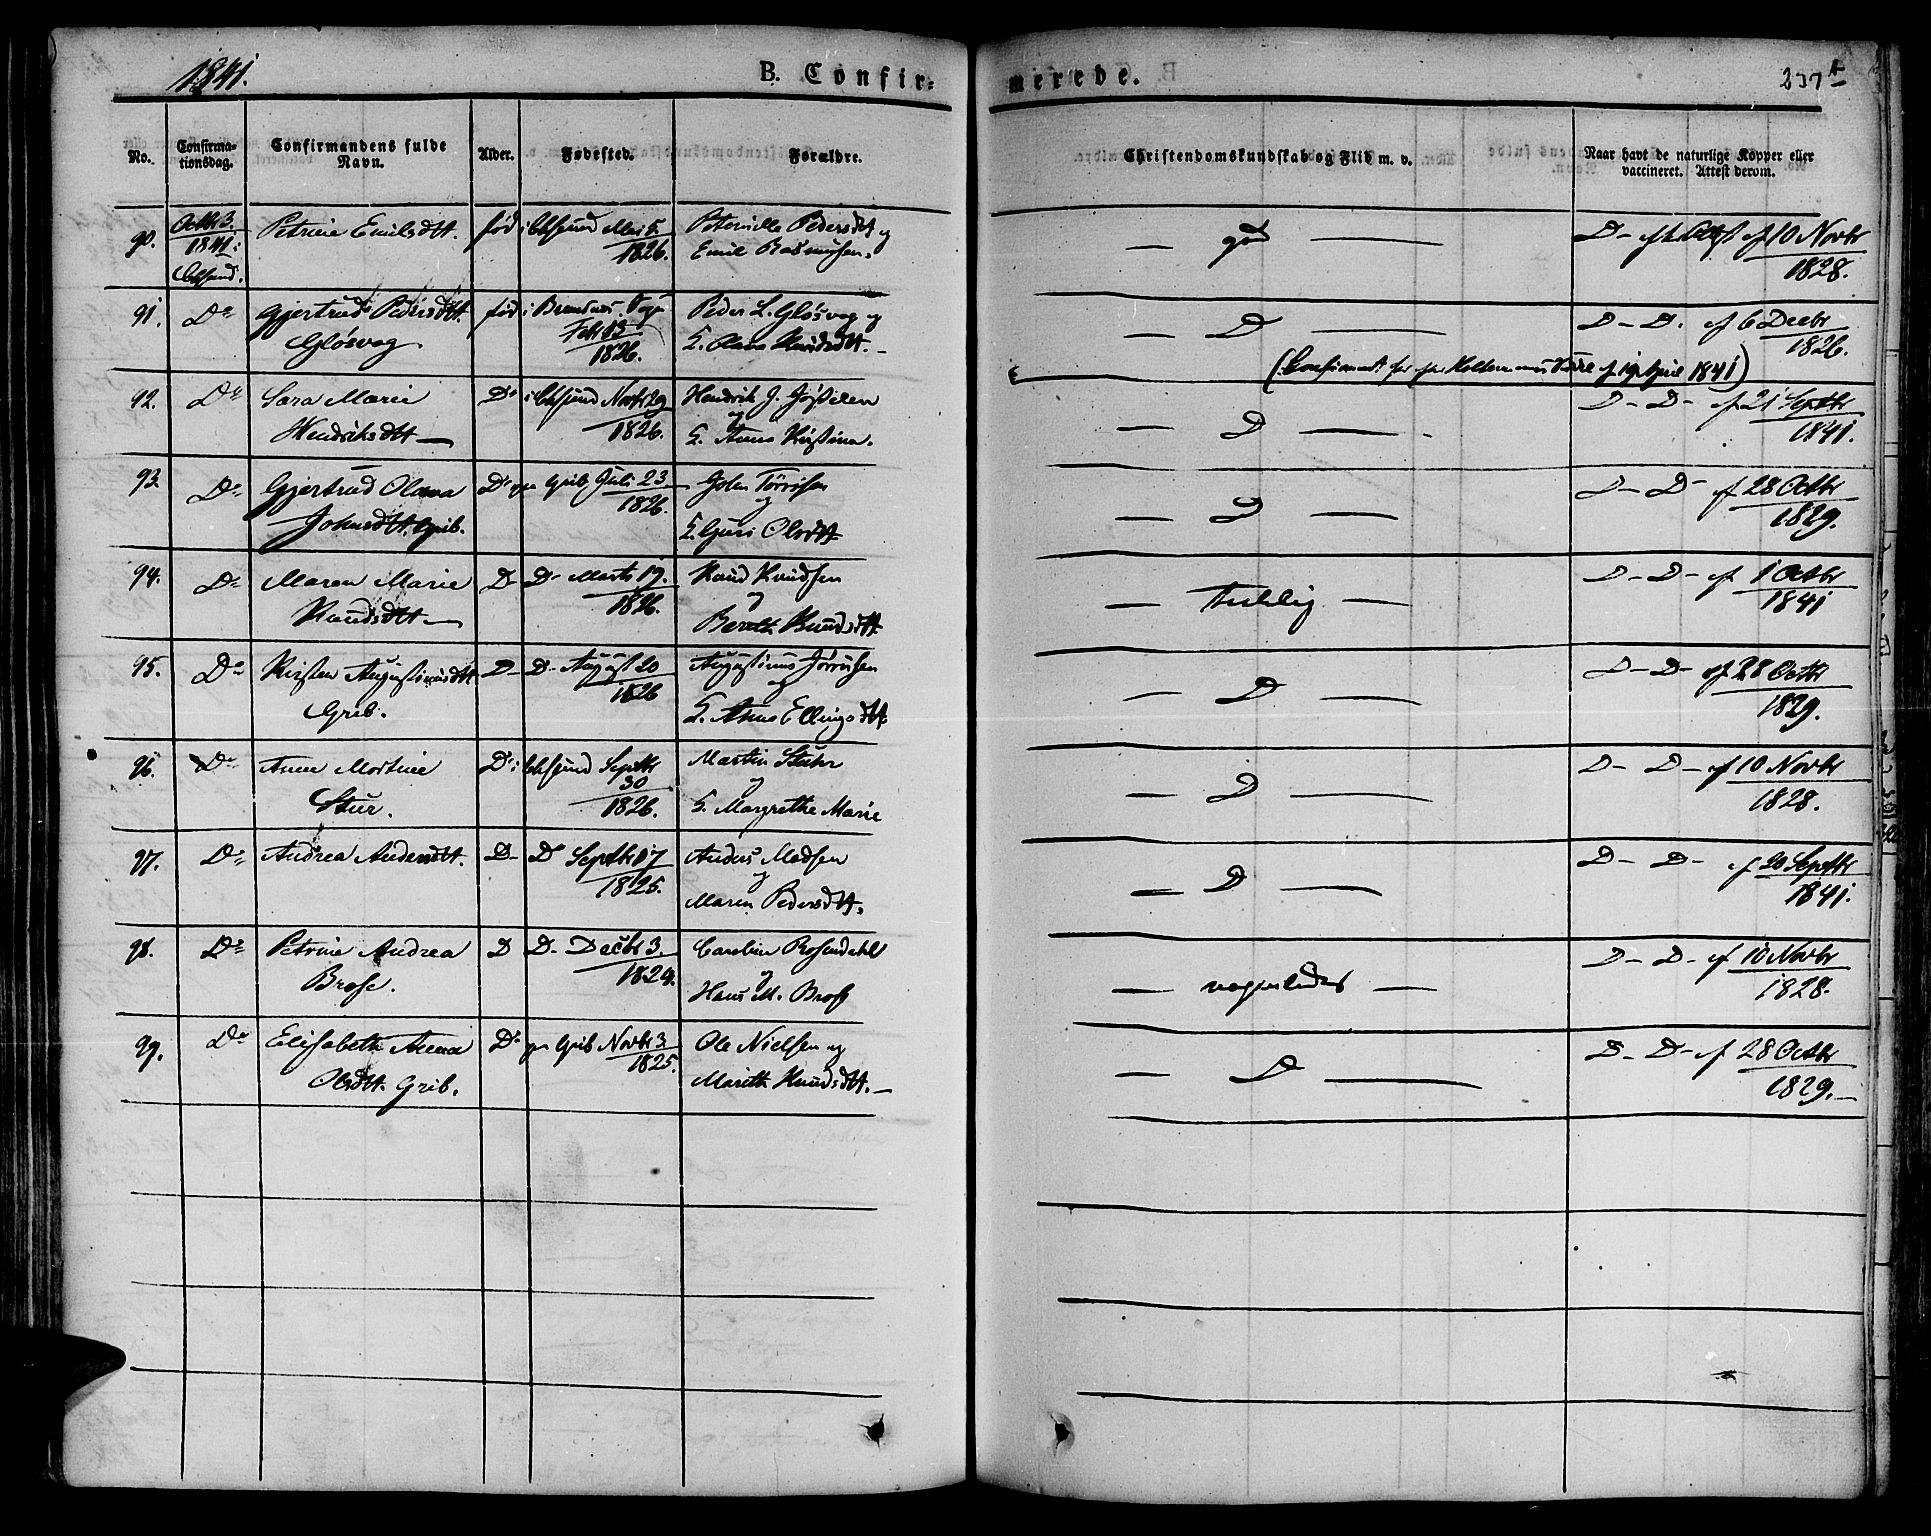 1841.
B. Confir-
merede.
237
No.
Confirma-
tionsdag.
Confirmandens fulde
Navn.
Alder.
Fødested.
Forældre.
Christendomskundskab og Flid m. v.
Naar havt de naturlige Kopper eller
vaccineret. Attest derom.
90.
Octbr 3.
1841.
Petrine Emilsdtt.
fød
Mai 5.
1826.
Peternille Pedersdtt og
Emil Rasmussen.
— god —
D- 10 Novbr
1828.
91.
Do
Gjertrud Pedersdtt.
Gløsvog.
fød i
Febr 13
1826.
Peder L. Gløsvog og
H. Olava
— D —
D- D. af 6 Decbr
1826.
1841)
92.
Do
Sara Marie
Hendriksdtt —
Do
Novbr 29
1826.
Hendrik J.
og
H. Anna Kirstina.
— D —
D- D- af 21 Septbr
1841.
93.
Do
Gjertrud Olava
Johnsdtt. Grib.
Do
Grib Juli 23
1826.
John
og
H. Guri Olsdtt
— D —
D- D- af 28 Octbr
1829.
94.
Do
Maren Marie
Knudsdtt —
D-
D- Marts 19.
1826.
Knud Knudsen
og
Bereth Knudsdtt
— —
D- D- af 1 Octbr
1841
95.
Do
Kirsten Augustinusdtt
Grib.
D-
D- August 20
1826
Augustinus
og
H. Anne Ellingsdtt
— D —
D- D- af 28 Octbr
1829.
96.
Do
Anne Martine
Stur.
Do
Septbr
30
1826.
Martin Stuhr
og
H. Margrethe Marie
— D —
D- D- af 10 Novbr
1828.
97.
Do
Andrea Andersdtt.
D-
Do Septbr 17
1825.
Anders Madsen
og
Maren Pedersdtt.
— D —
D- D- af 20 Septbr
1841.
98.
Do
Petrine Andrea
Brose.
D
D- Decbr 3.
1824.
Carolin Rosendahl
og
Hans M. Brose
— —
D- D- af 10 Novbr
1828.
99.
Do
Elisabeth Anna
Olsdtt. Grib.
Do
Grib Novbr 3
1825.
Ole Nielsen og
Mareth Knudsdtt. —
— D —
D- D- af 28 Octbr
1829. —